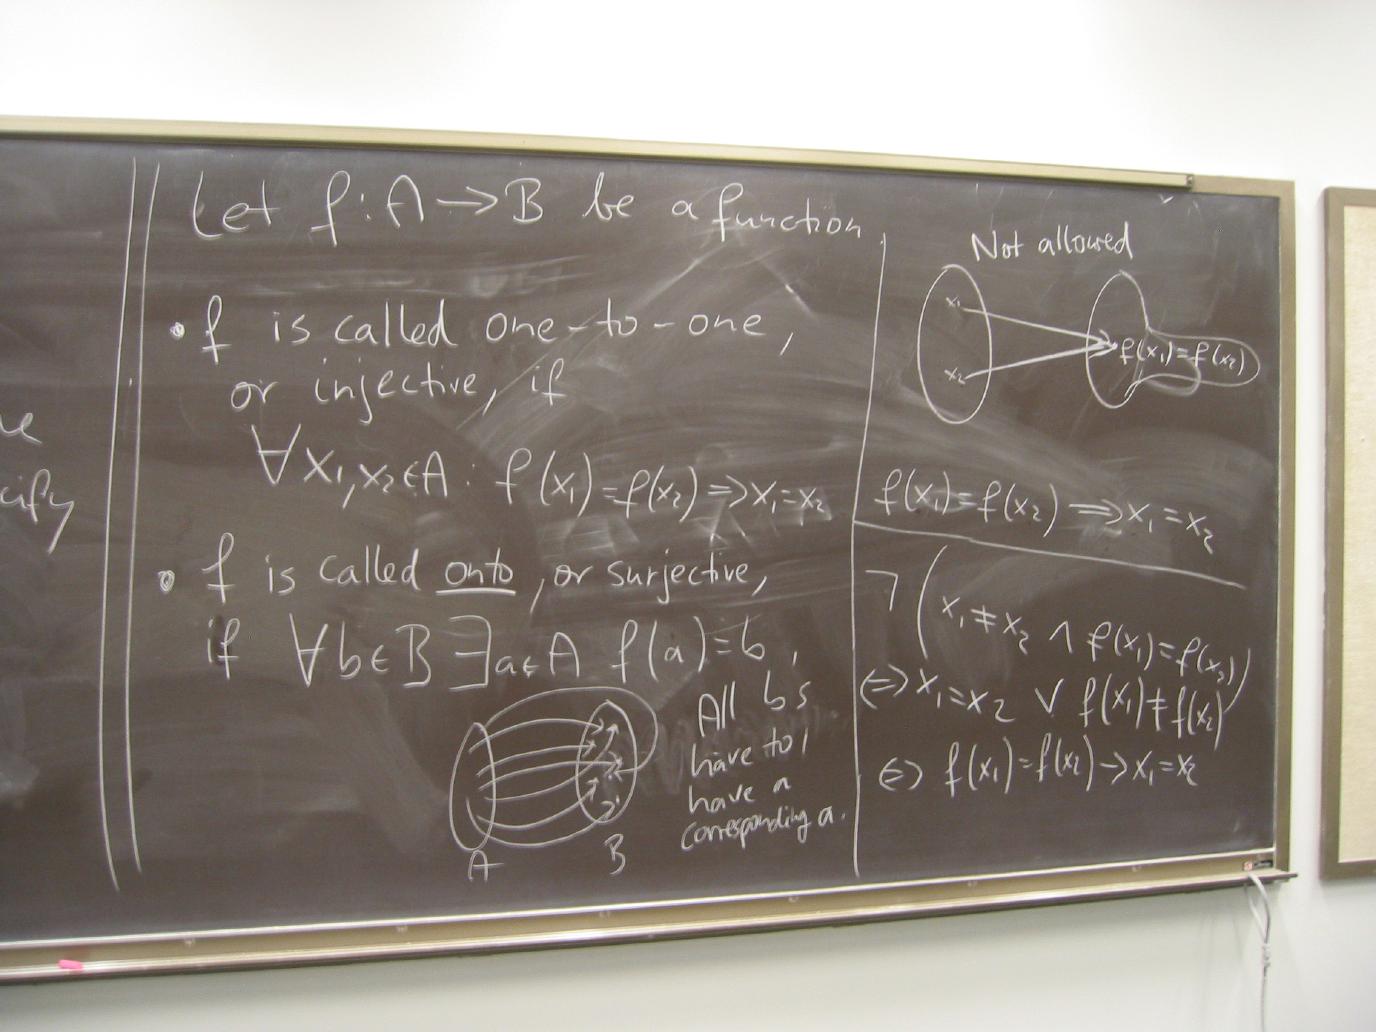 ue
cify
Let f: A → B be a function
• f is called one-to-one,
or injective, if
∀x₁,x₂∈A : f(x₁)=f(x₂) ⇒ x₁=x₂
• f is called onto, or surjective,
if ∀b∈B ∃a∈A f(a)=b,
All b s
have to
have a
corresponding a.
A
B
Not allowed
x₁
x₂
f(x₁)=f(x₂)
f(x₁)=f(x₂) ⟹ x₁=x₂
¬(x₁≠x₂ ∧ f(x₁)=f(x₂))
⇔ x₁=x₂ ∨ f(x₁)≠f(x₂)
⇔ f(x₁)=f(x₂) → x₁=x₂